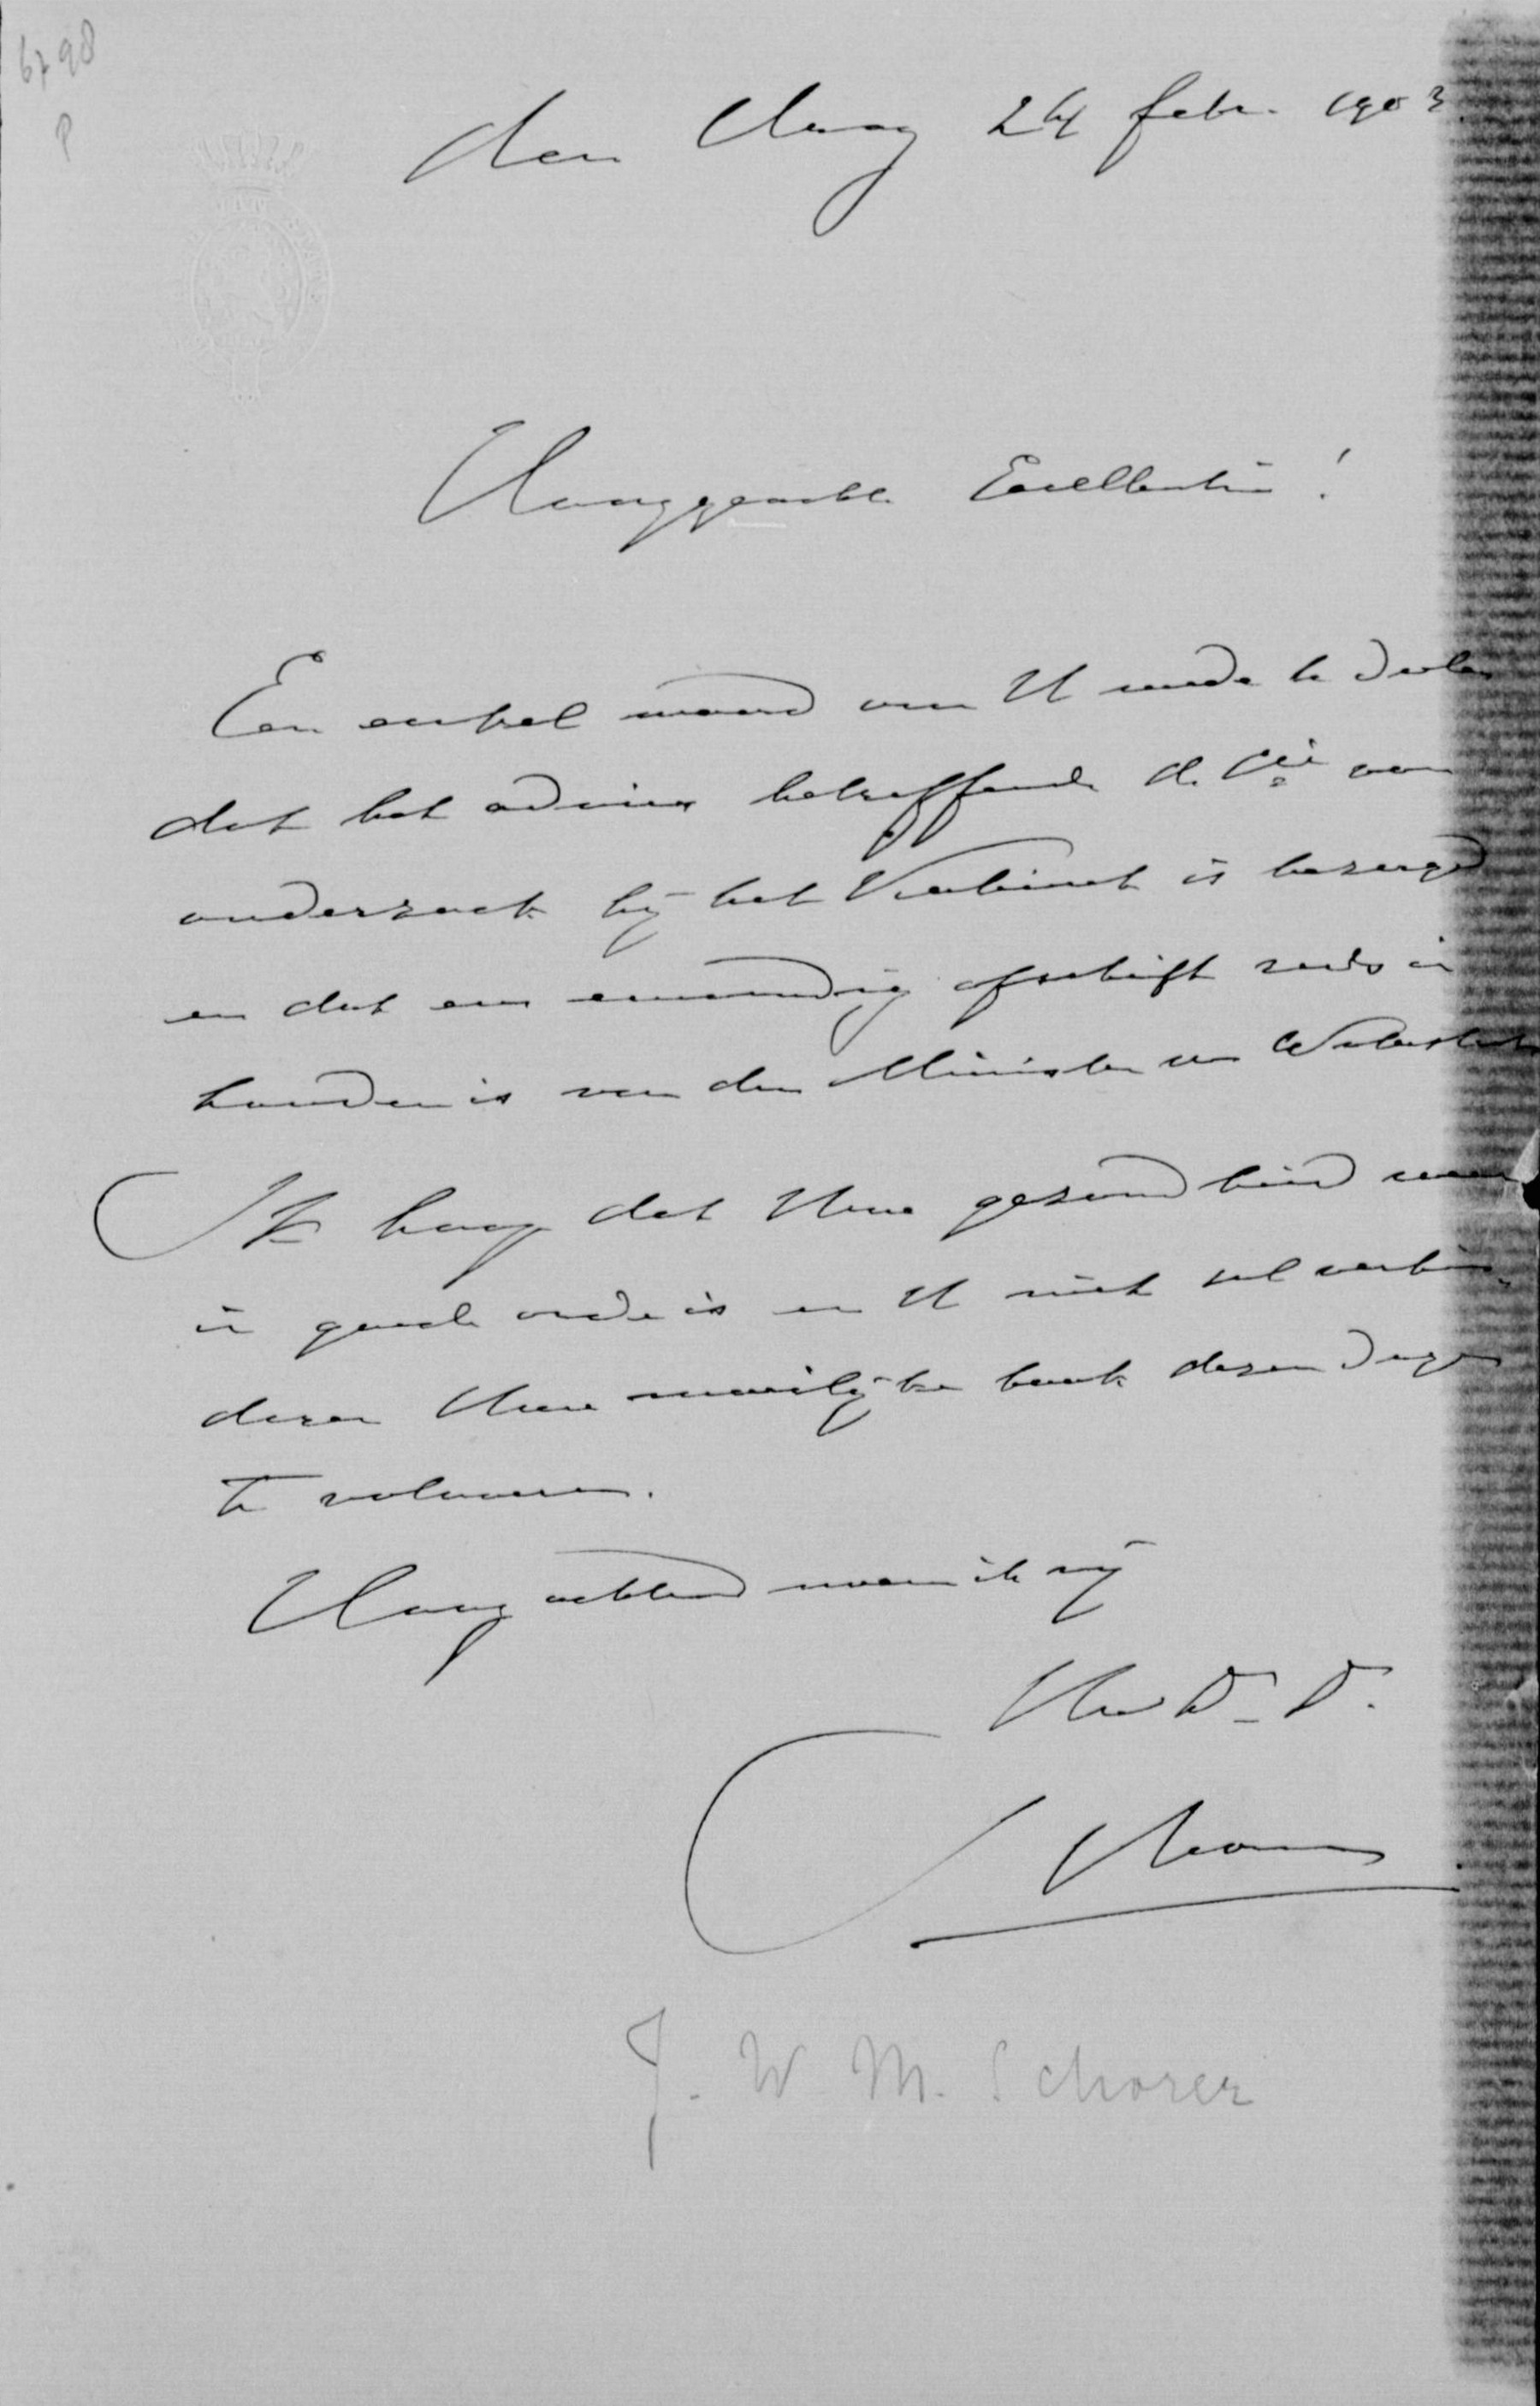 6798
P
den Haag 24 febr. 1903
Hooggeachte Excellentie!
Een enkel woord om U mede te deelen
dat het advies betreffende de Cie van
onderzoek bij het Kabinet is bezorgd
en dat een eenvoudig afschrift reeds in
handen is van den Minister van Waterstaat
Ik hoop dat Uwe gezondheid weer
in goede orde is en U niet zal verhin-
deren Uwe moeilijke taak dezer dagen
te volvoeren.
Hoogachtend noem ik mij
Uw Dw. D.
Schorer
J. W M. Schorer